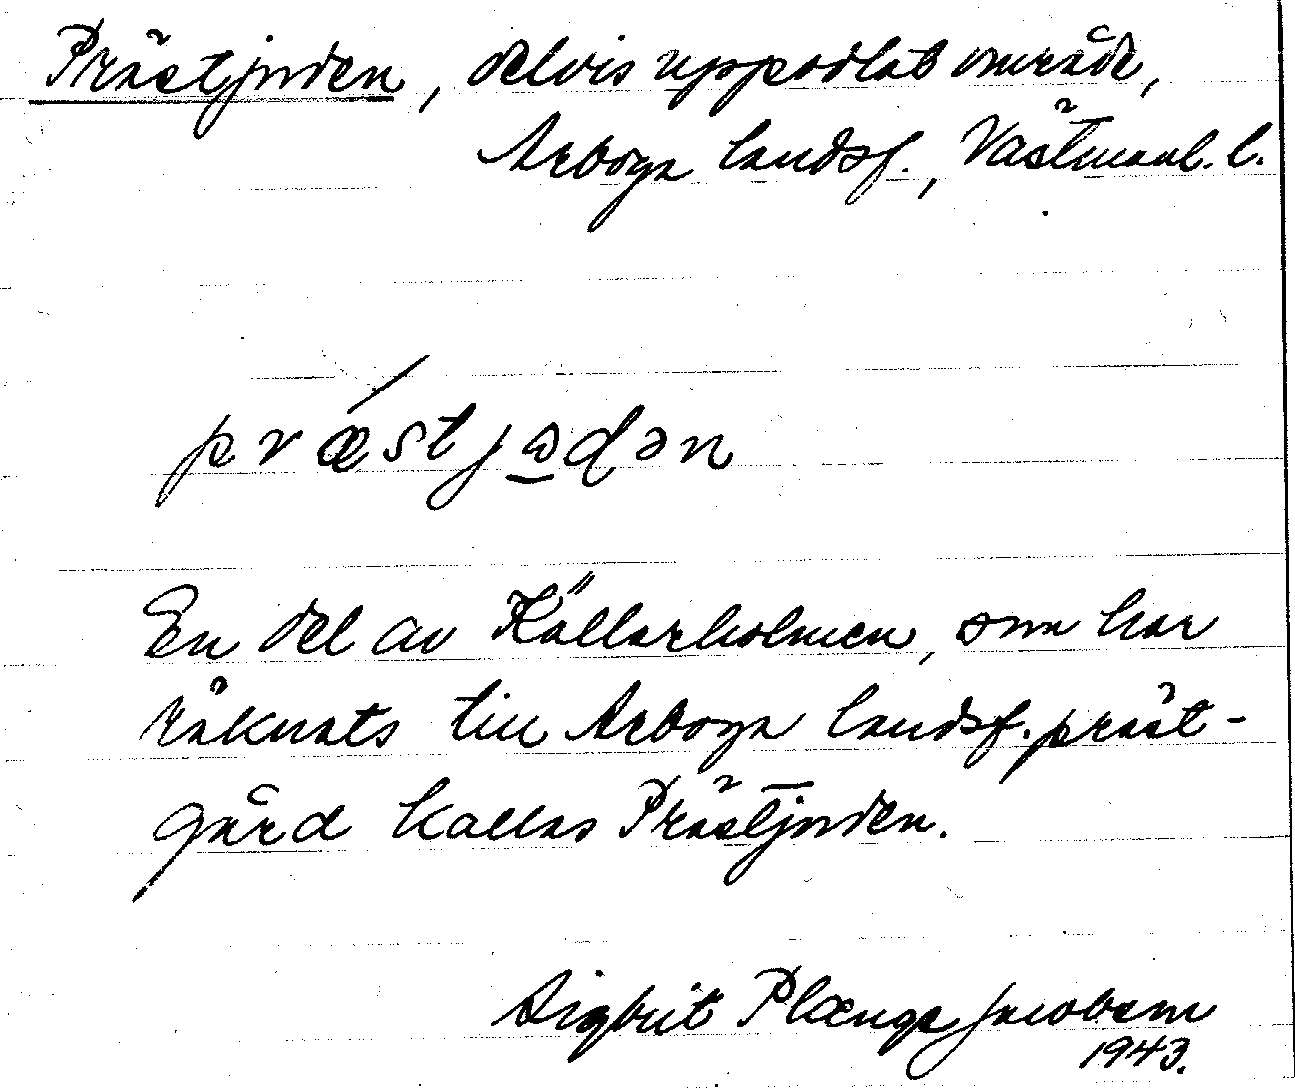 Prästjorden, delvis uppodlat område,
Arboga landsf., Västmanl. l.
præstjωdən
En del av Källarholmen, som har
räknats till Arboga landsf. präst-
gård kallas Prästjorden.
Sigbrit Plænge Jacobson
1943.